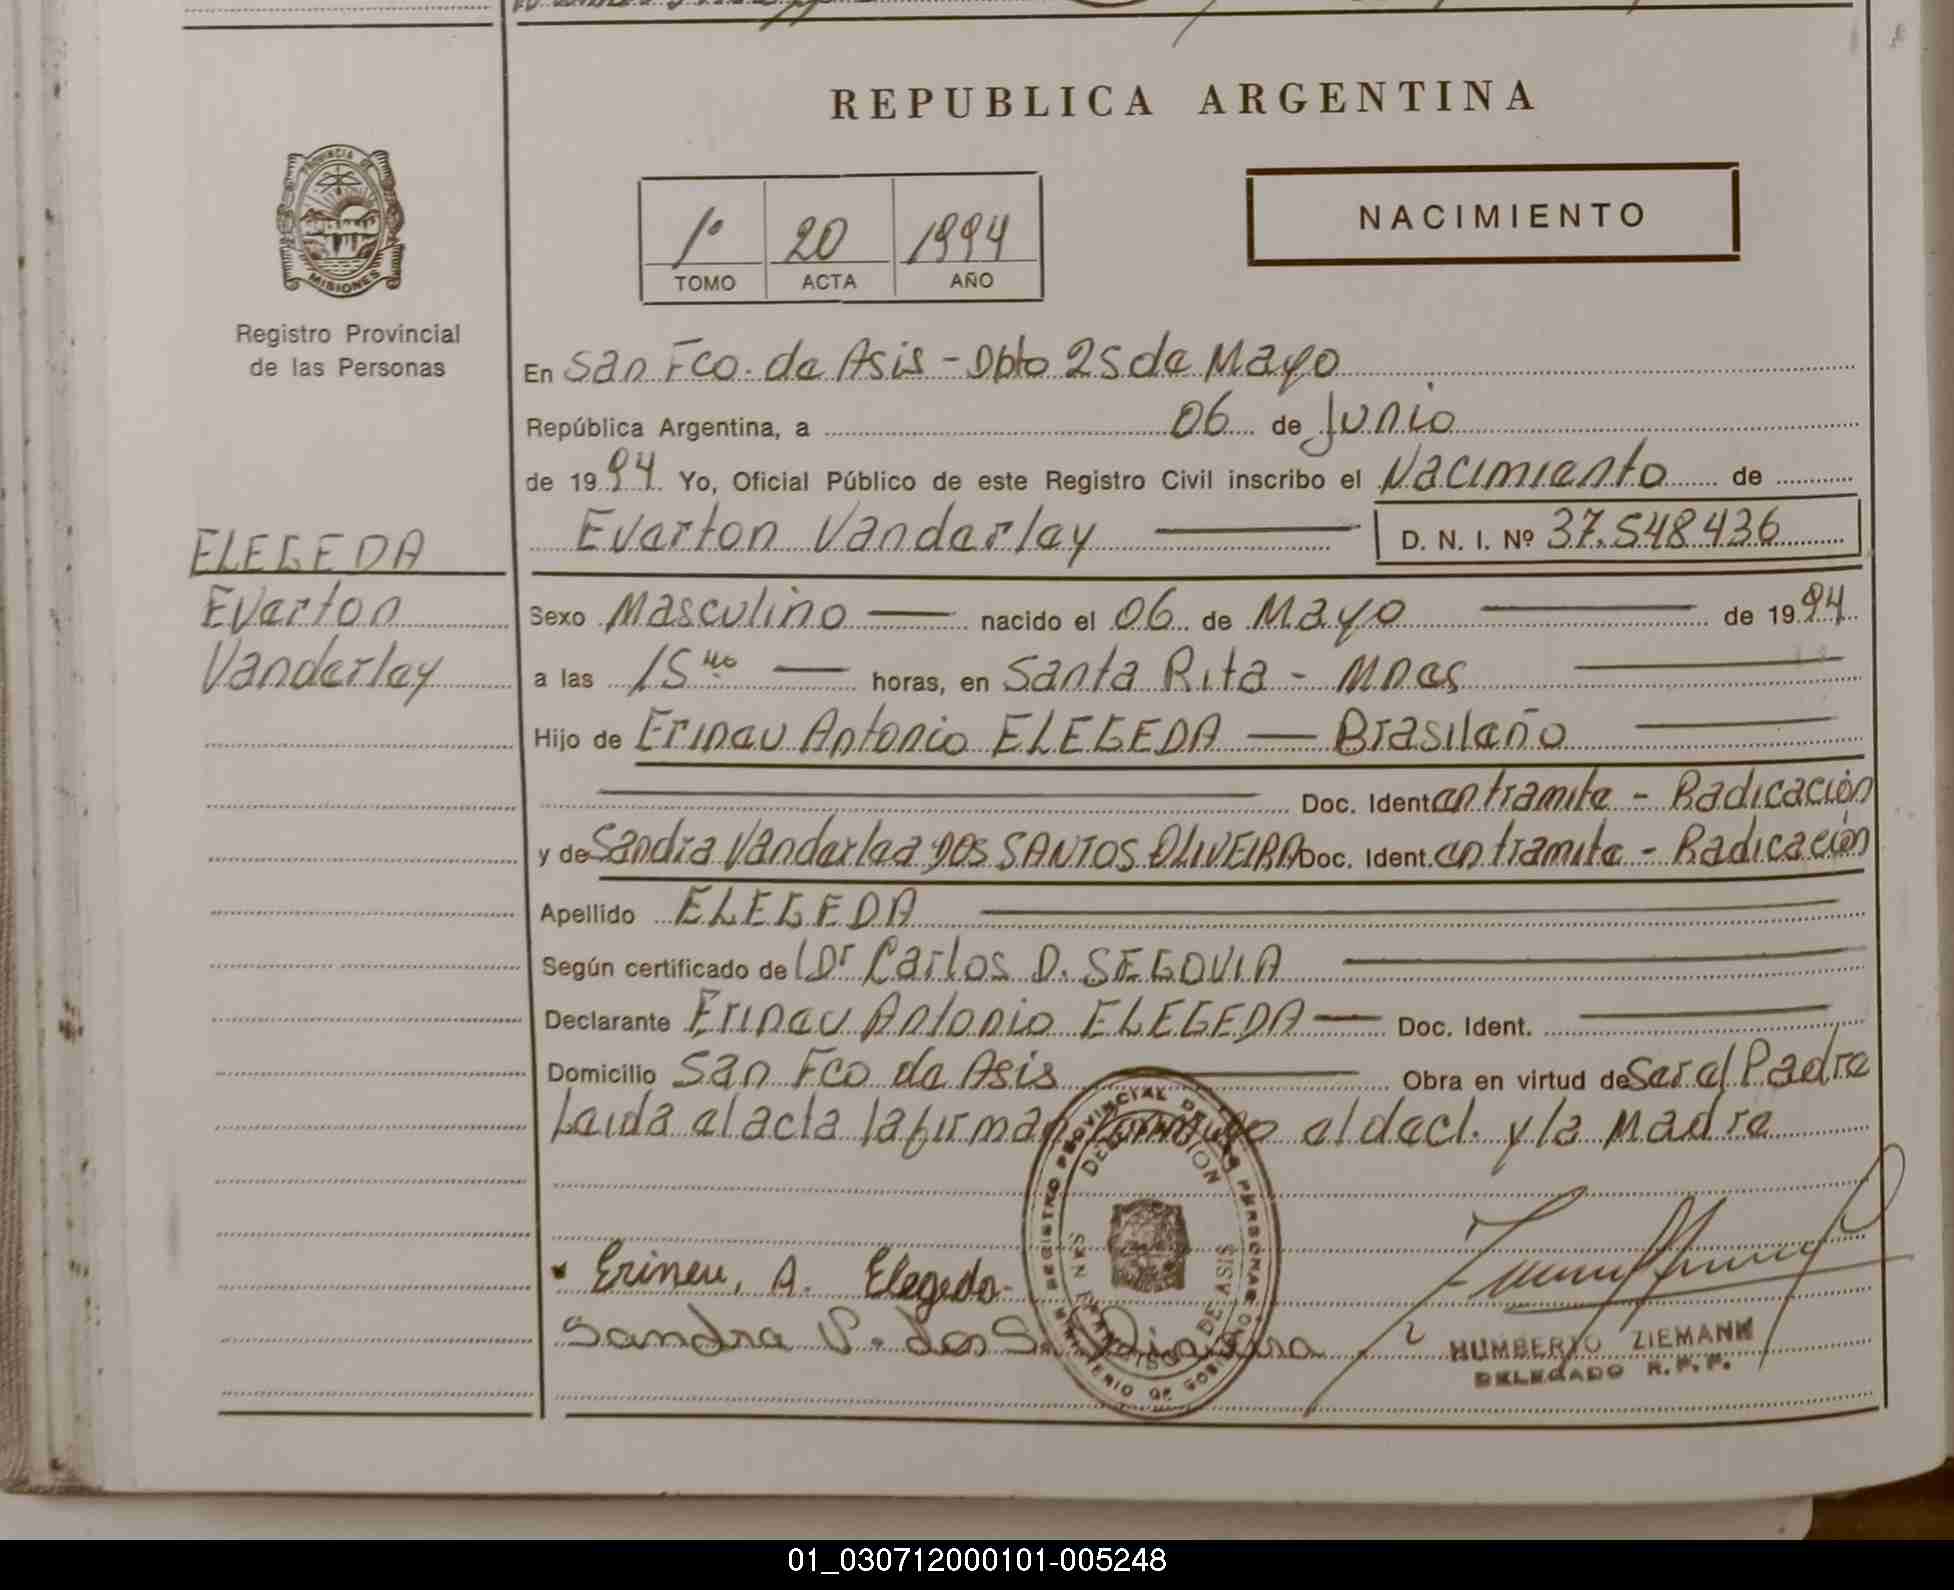 REPUBLICA ARGENTINA
PROVINCIA DE
MISIONES
Registro Provincial
de las Personas
1º 20 1994
TOMO ACTA AÑO
NACIMIENTO
En San Fco. de Asis - Dpto 25 de Mayo
República Argentina, a 06 de Junio
de 1994 Yo, Oficial Público de este Registro Civil inscribo el Nacimiento de
Everton Vanderley D. N. I. Nº 37.548.436
ELEGEDA
Everton
Vanderley
Sexo Masculino nacido el 06 de Mayo de 1994
a las 15 horas, en Santa Rita - Mnes
Hijo de Erineu Antonio ELEGEDA Brasileño
Doc. Ident. en tramite - Radicación
y de Sandra Vanderlea DOS SANTOS OLIVEIRA Doc. Ident. en tramite - Radicación
Apellido ELEGEDA
Según certificado de Dr Carlos D. SEGOVIA
Declarante Erineu Antonio ELEGEDA Doc. Ident.
Domicilio San Fco de Asis Obra en virtud de Ser el Padre
Leida el acta la firman conmigo el decl. y la Madre
REGISTRO PROVINCIAL DE LAS PERSONAS
MINISTERIO DE GOBIERNO
DELEGACION
SAN FRANCISCO DE ASIS
Erineu, A. Elegeda
Sandra V. dos S. Oliveira
HUMBERTO ZIEMANN
DELEGADO R. P. P.
01_030712000101-005248